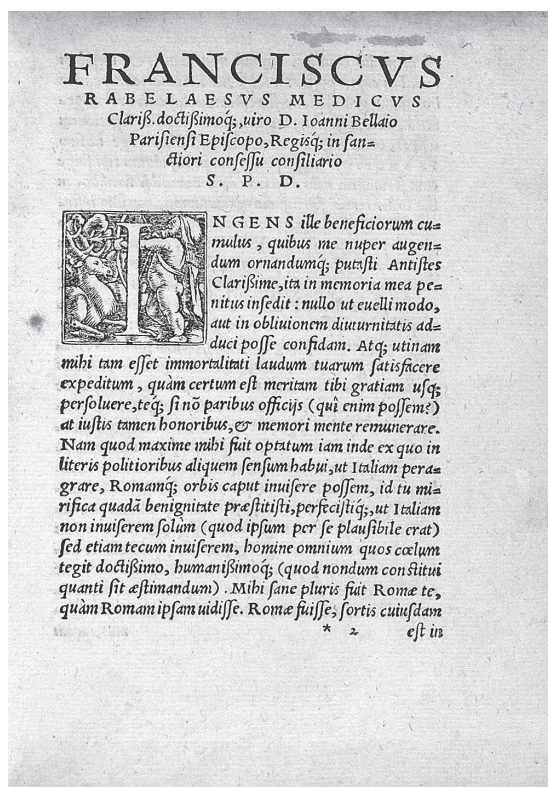 FRANCISCVS
RABELAESVS MEDICVS
Clariß. doctißimoq́;, uiro D. Ioanni Bellaio
Pariſienſi Epiſcopo, Regisq́; in ſan=
ctiori conſeſſu conſiliario
S. P. D.
INGENS ille beneficiorum cu=
mulus, quibus me nuper augen=
dum ornandumq́; putaſti Antiſtes
Clarißime, ita in memoria mea pe=
nitus inſedit: nullo ut euelli modo,
aut in obliuionem diuturnitatis ad=
duci poſſe confidam. Atq; utinam
mihi tam eſſet immortalitati laudum tuarum ſatisfacere
expeditum, quàm certum eſt meritam tibi gratiam uſq;
perſoluere, teq́; ſi nõ paribus officijs (quî enim poſſem?)
at iuſtis tamen honoribus, & memori mente remunerare.
Nam quod maxime mihi fuit optatum iam inde ex quo in
literis politioribus aliquem ſenſum habui, ut Italiam pera=
grare, Romamq́; orbis caput inuiſere poſſem, id tu mi=
rifica quadã benignitate præſtitiſti, perfeciſtiq́;, ut Italiam
non inuiſerem ſolùm (quod ipſum per ſe plauſibile erat)
ſed etiam tecum inuiſerem, homine omnium quos cœlum
tegit doctißimo, humanißimoq́; (quod nondum conſtitui
quanti ſit æſtimandum). Mihi ſane pluris fuit Romæ te,
quàm Romam ipſam uidiſſe. Romæ fuiſſe, ſortis cuiuſdam
* 2 eſt in